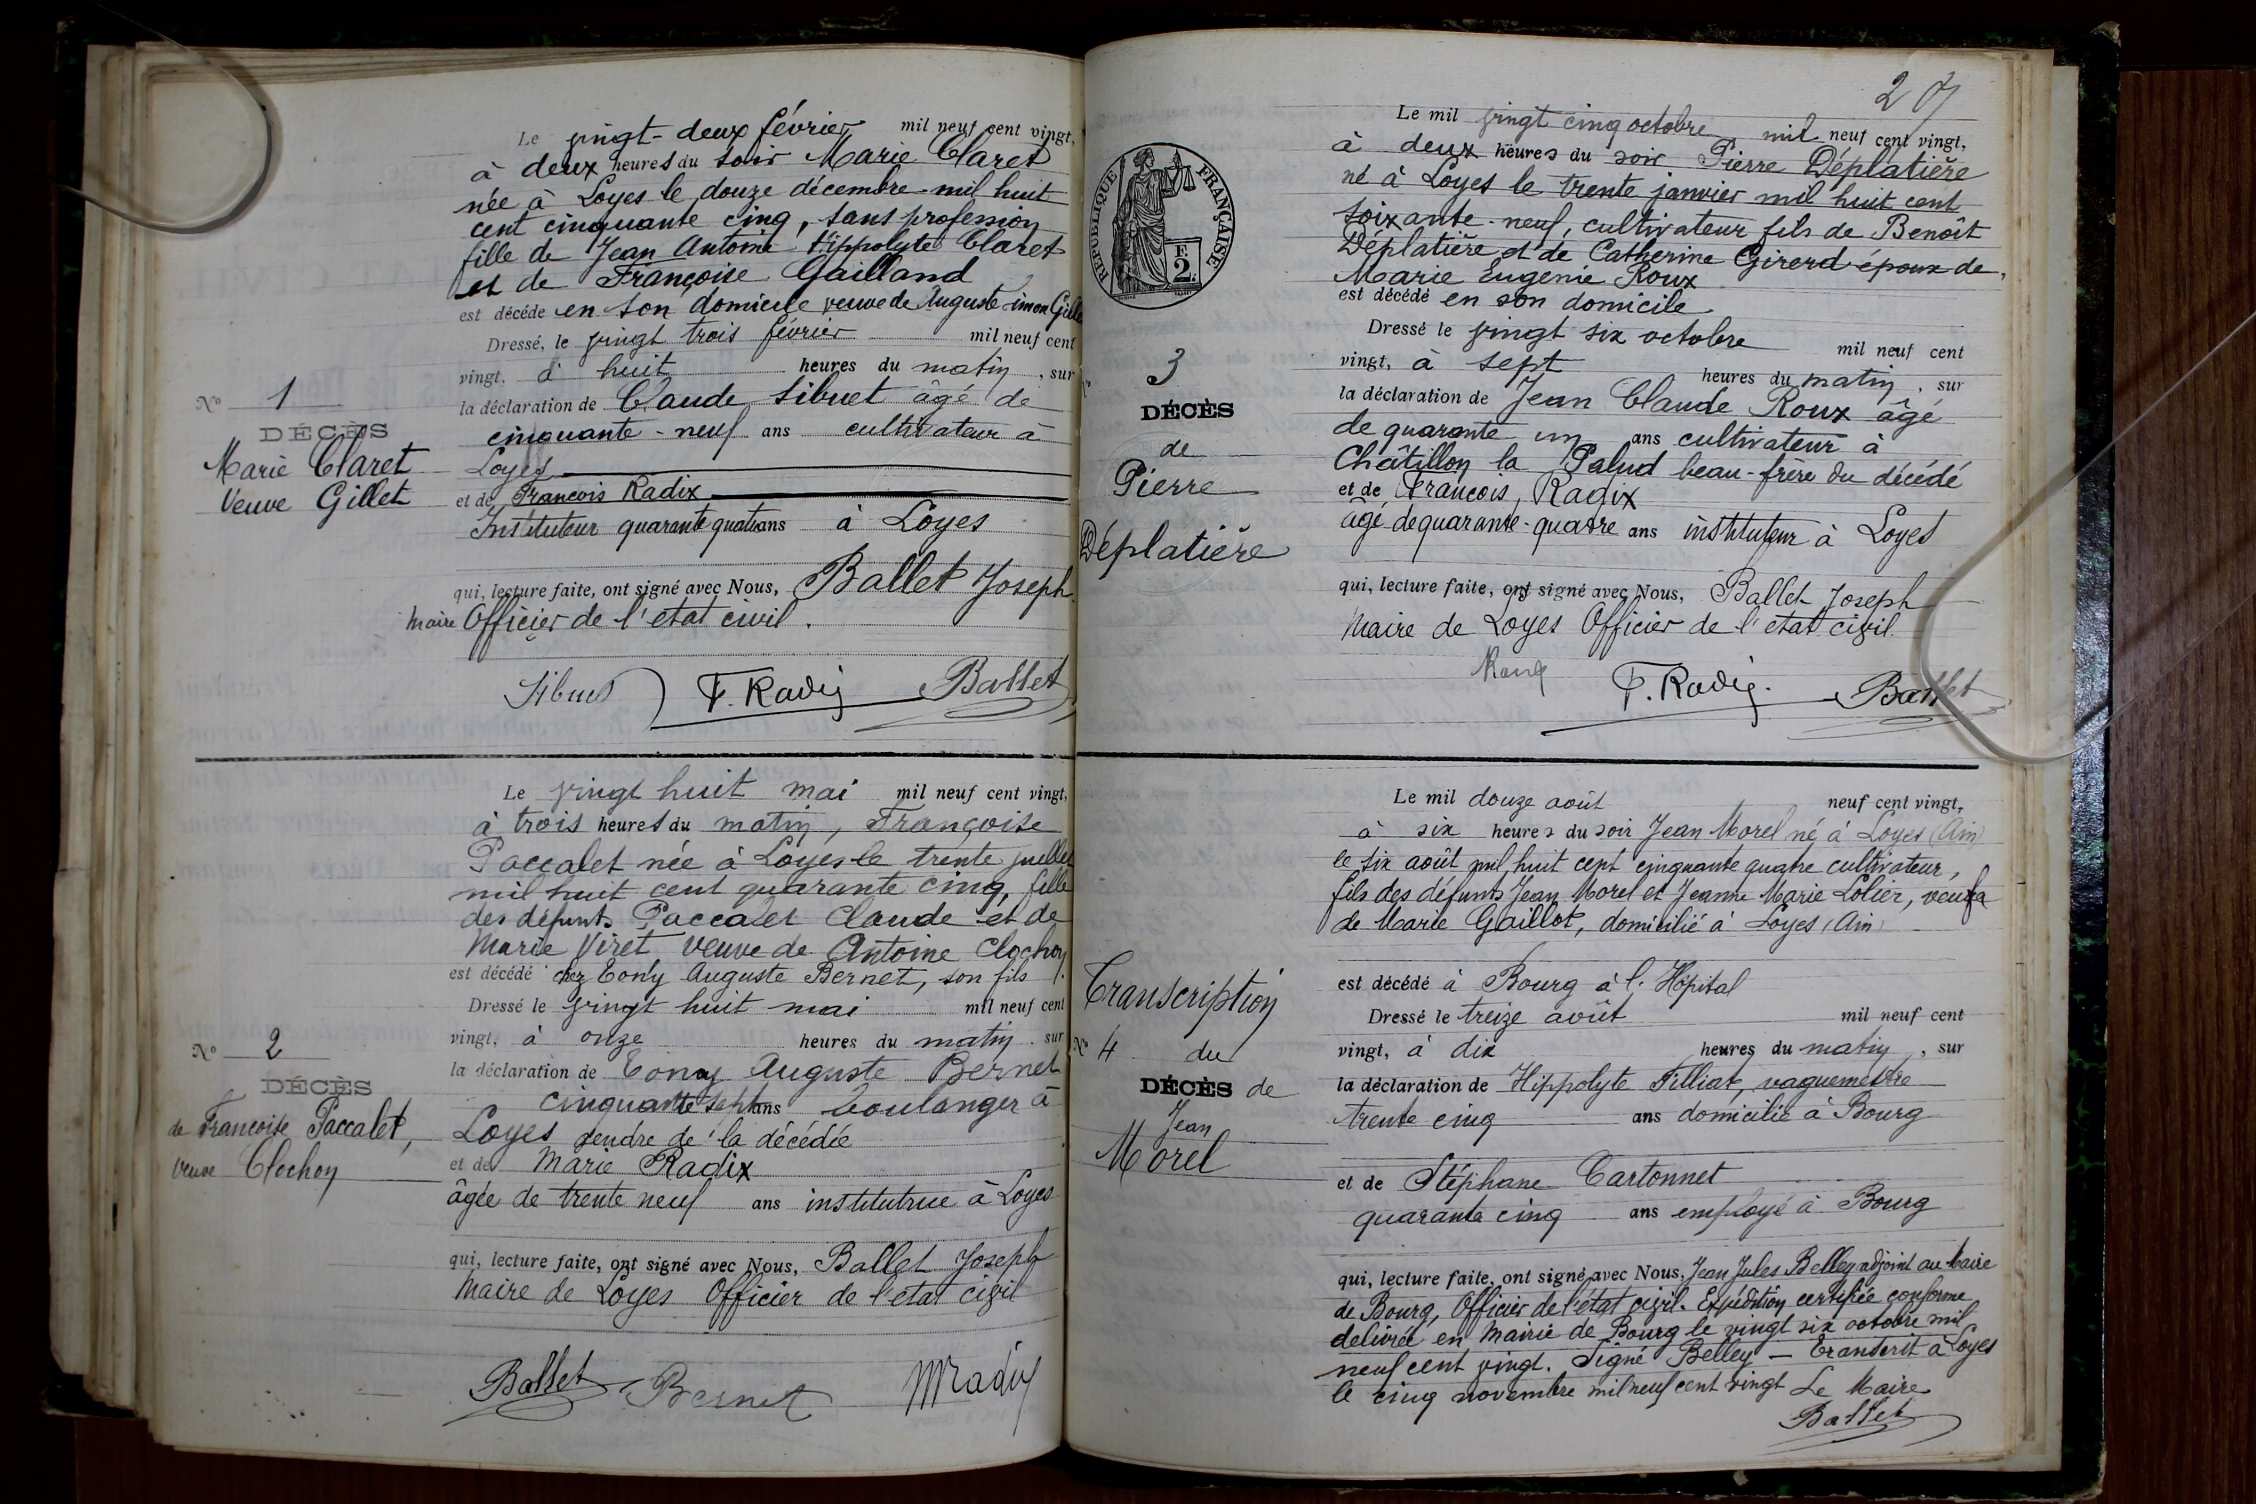 Le vingt-deux février mil neuf cent vingt,
à deux heures du soir Marie Claret
née à Loyes le douze décembre mil huit
cent cinquante cinq, sans profession
fille de Jean Antoine Hippolyte Claret
et de Françoise Gailland
est décédé en son domicile veuve de Auguste Gillet
Dressé, le vingt trois février mil neuf cent
vingt, à huit heures du matin, sur
la déclaration de Claude Sibuet âgé de
cinquante-neuf ans cultivateur à
Loyes
et de François Radix
Instituteur quarante quatre ans à Loyes
qui, lecture faite, ont signé avec Nous, Ballet Joseph
Maire Officier de l'état civil.
Sibuet F. Radix Ballet
No 1
DÉCÈS
Marie Claret
Veuve Gillet
Le vingt huit mai mil neuf cent vingt,
à trois heures du matin, Françoise
Paccalet née à Loyes le trente juillet
mil huit cent quarante cinq, fille
des défunts Paccalet Claude et de
Marie Viret veuve de Antoine Clochoy
est décédé chez Tony Auguste Bernet, son fils
Dressé le vingt huit mai mil neuf cent
vingt, à onze heures du matin sur
la déclaration de Tony Auguste Bernet
cinquante sept ans boulanger à
Loyes gendre de la décédée
et de Marie Radix
âgée de trente neuf ans institutrice à Loyes
qui, lecture faite, ont signé avec Nous, Ballet Joseph
Maire de Loyes Officier de l'état civil
Ballet Bernet M Radix
No 2
DÉCÈS
de Françoise Paccalet,
veuve Clochoy
27
Le mil vingt cinq octobre mil neuf cent vingt,
à deux heures du soir Pierre Déplatière
né à Loyes le trente janvier mil huit cent
soixante-neuf, cultivateur fils de Benoît
Déplatière et de Catherine Girerd époux de
Marie Eugenie Roux
est décédé en son domicile
Dressé le vingt six octobre mil neuf cent
vingt, à sept heures du matin, sur
la déclaration de Jean Claude Roux âgé
de quarante un ans cultivateur à
Châtillon la Palud beau-frère du décédé
et de François Radix
âgé de quarante-quatre ans instituteur à Loyes
qui, lecture faite, ont signé avec Nous, Ballet Joseph
Maire de Loyes Officier de l'état civil.
Roux F. Radix. Ballet
RÉPUBLIQUE FRANÇAISE
2F.
No 3
DÉCÈS
de
Pierre
Déplatière
Le mil douze août neuf cent vingt,
à six heures du soir Jean Morel né à Loyes (Ain)
le six août mil huit cent cinquante quatre cultivateur,
fils des défunts Jean Morel et Jeanne Marie Lolier, veuf
de Marie Gaillot, domicilié à Loyes (Ain)
est décédé à Bourg à l'Hôpital
Dressé le treize août mil neuf cent
vingt, à dix heures du matin, sur
la déclaration de Hippolyte Filliat, vaguemestre
trente cinq ans domicilié à Bourg
et de Stéphane Cartonnet
quarante cinq ans employé à Bourg
qui, lecture faite, ont signé avec Nous, Jean Jules Belley adjoint au Maire
de Bourg, Officier de l'état civil. Expédition certifiée conforme
délivrée en Mairie de Bourg le vingt six octobre mil
neuf cent vingt. Signé Belley — Transcrit à Loyes
le cinq novembre mil neuf cent vingt Le Maire
Ballet
Transcription
No 4 du
DÉCÈS de
Jean
Morel